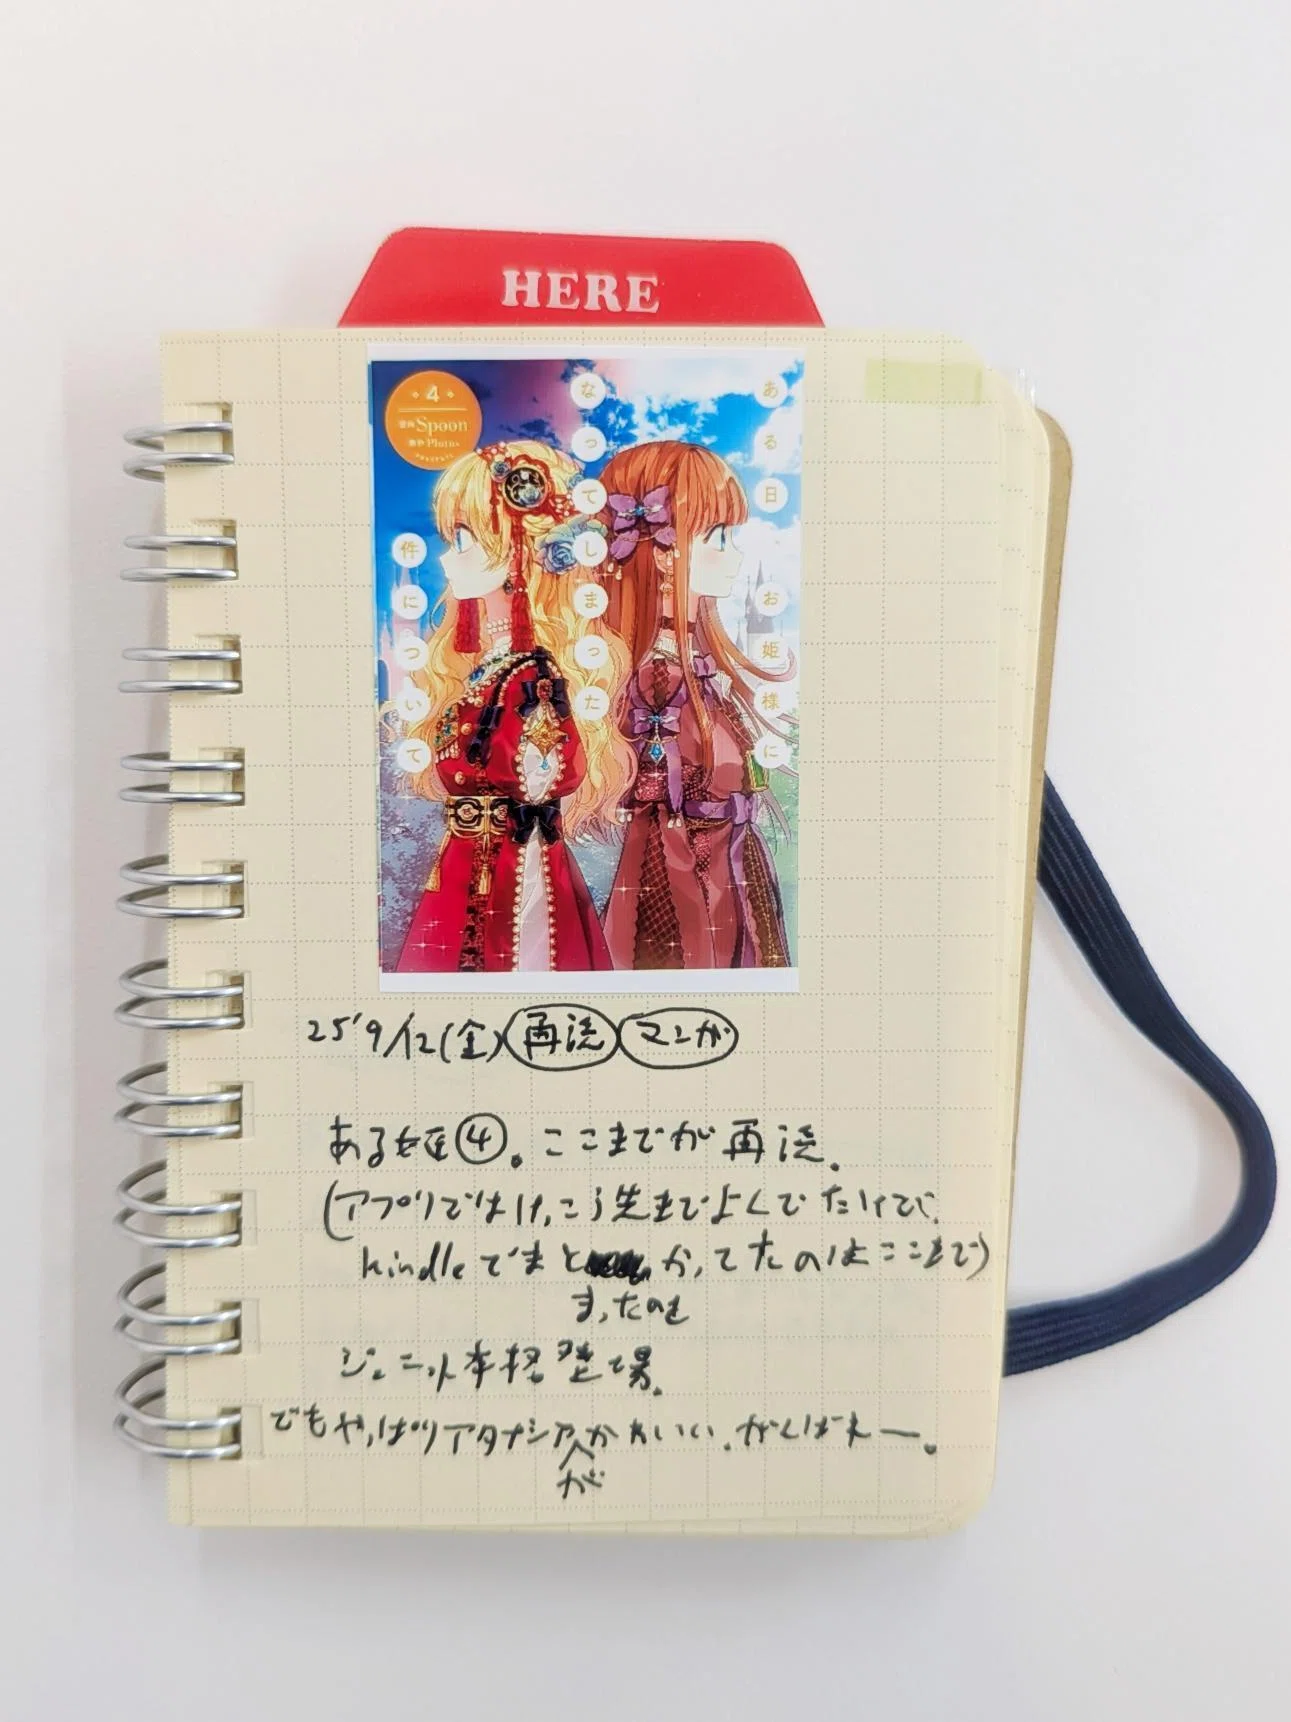 HERE
4
漫画 Spoon
原作 Plutus
ある日お姫様に
なってしまった
件について
25' 9/12(金) 再読 マンガ
ある姫④。ここまでが再読。
(アプリではけっこう先までよんでたけど、
kindleでま と かってたのはここまで)
まったのを
ジェニット本格登場。
でもやっぱりアタナシアがかわいい。がんばれー。